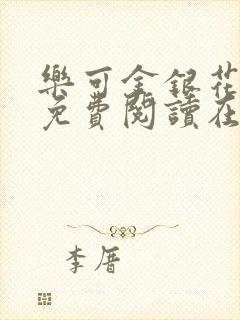 樂可金銀花
免費閱讀在
李厝